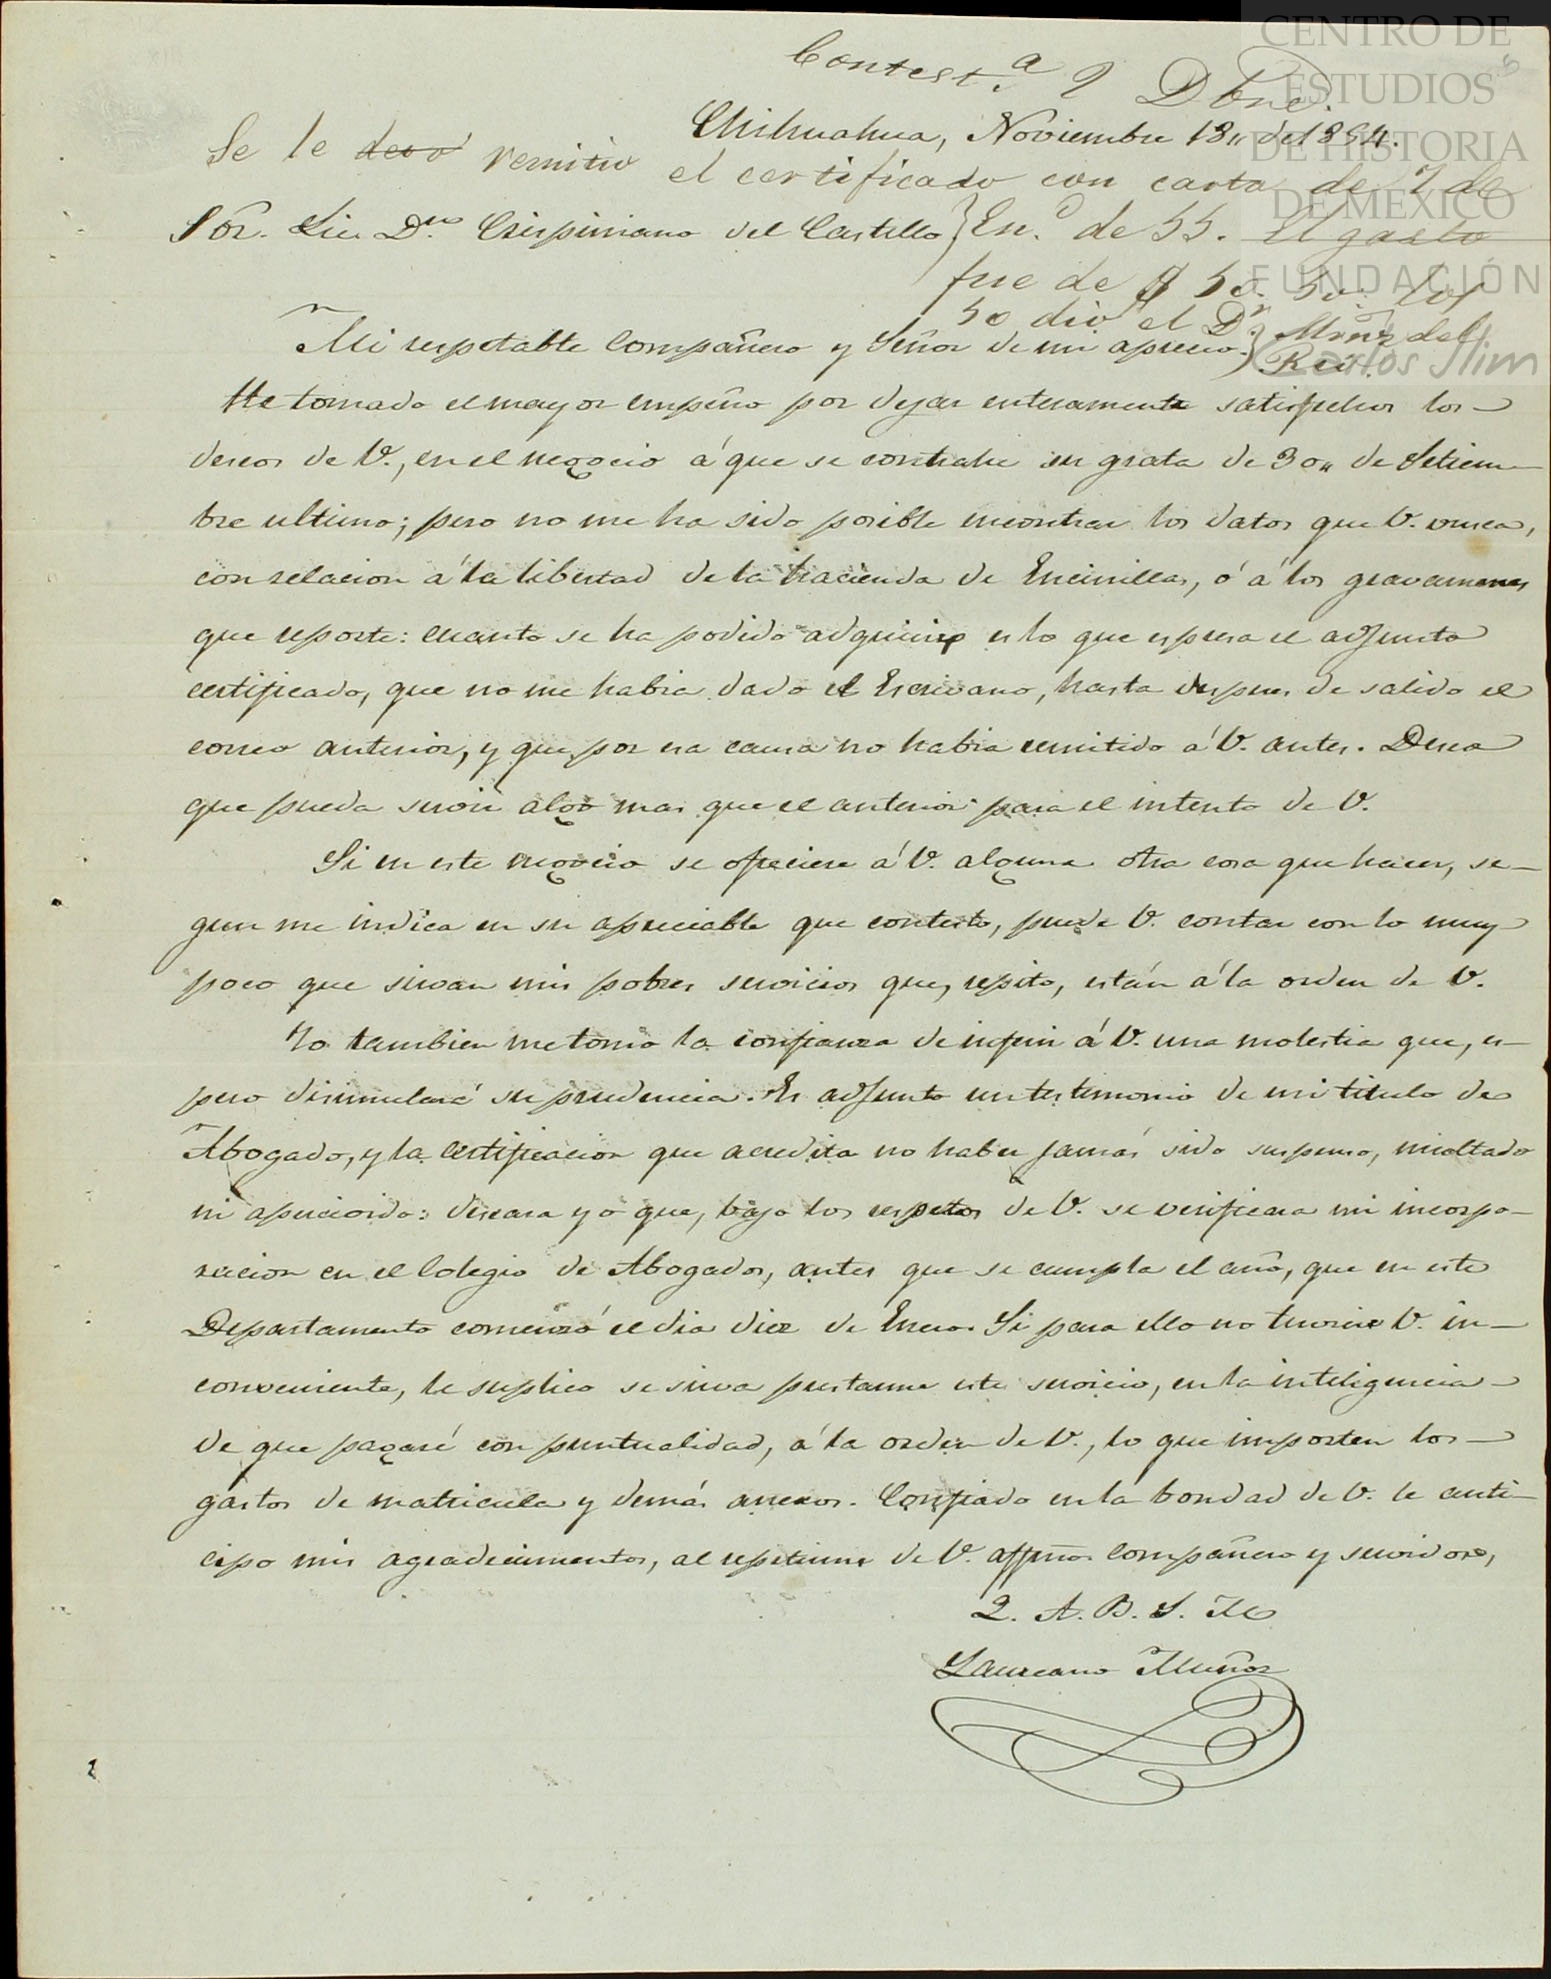 Contest.ª 9 Dbre.
Chihuahua, Noviembre 18,, de 1854.
Se le devo remitio el certificado con carta de 7 de
Sôr. Lic. D.n Crispiniano del Castillo } En.º de 55. El gasto
fue de $ 50. 50. los
50 dio el Dr. Munz del
Rio.
Mi respetable Compañero y Señor de mi aprecio.
He tomado el mayor empeño por dejar enteramente satisfechos los
deseos de V., en el negocio á que se contrahe su grata de 30,, de Setiem-
bre ultimo; pero no me ha sido posible encontrar los datos que V. busca,
con relacion á la libertad de la hacienda de Encinillas, ó á los gravamenes
que reporte: cuanto se ha podido adquirir es lo que espresa el adjunto
certificado, que no me habia dado el Escrivano, hasta despues de salido el
correo anterior, y que por esa causa no habia remitido á V. antes. Deseo
que pueda servir algo mas que el anterior para el intento de V.
Si en este negocio se ofreciere á V. alguna otra cosa que hacer, se-
gun me indica en su apreciable que contesto, puede V. contar con lo muy
poco que sirvan mis pobres servicios que, repito, están á la orden de V.
Yo tambien me tomo la confianza de inferir á V. una molestia que, es-
pero disimulará su prudencia. Es adjunto un testimonio de mi titulo de
Abogado, y la certificacion que acredita no haber jamás sido suspenso, multado
ni apercivido: deseara yo que, bajo los respetos de V. se verificara mi incorpo-
racion en el Colegio de Abogados, antes que se cumpla el año, que en este
Departamento comenzó el dia diez de Enero. Si para ello no tuviere V. in-
conveniente, le suplico se sirva prestarme este servicio, en la inteligencia
de que pagaré con puntualidad, á la orden de V., lo que importen los
gastos de matricula y demás anexos. Confiado en la bondad de V. le anti-
cipo mis agradecimientos, al repetirme de V. affmo. compañero y servidor,
Q. A. B. S. M.
Laureano Muñoz
CENTRO DE
ESTUDIOS
DE HISTORIA
DE MÉXICO
FUNDACIÓN
Carlos Slim